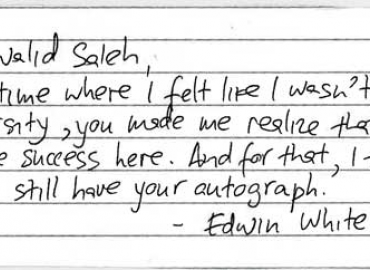 walid Saleh,
time where I felt like I wasn't
sity, you made me realize tha
e success here. And for that, I
still have your autograph.
- Edwin White